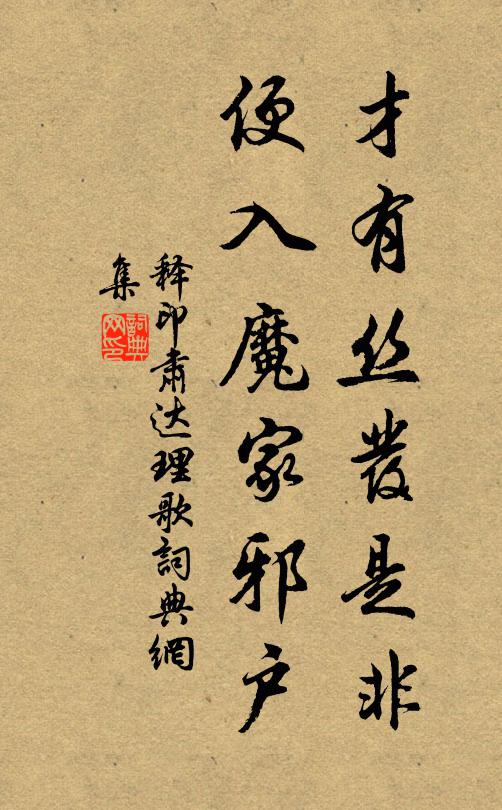 才有丝发是非
便入魔家邪户
释印肃达理歌詞典網
集
詞典网印